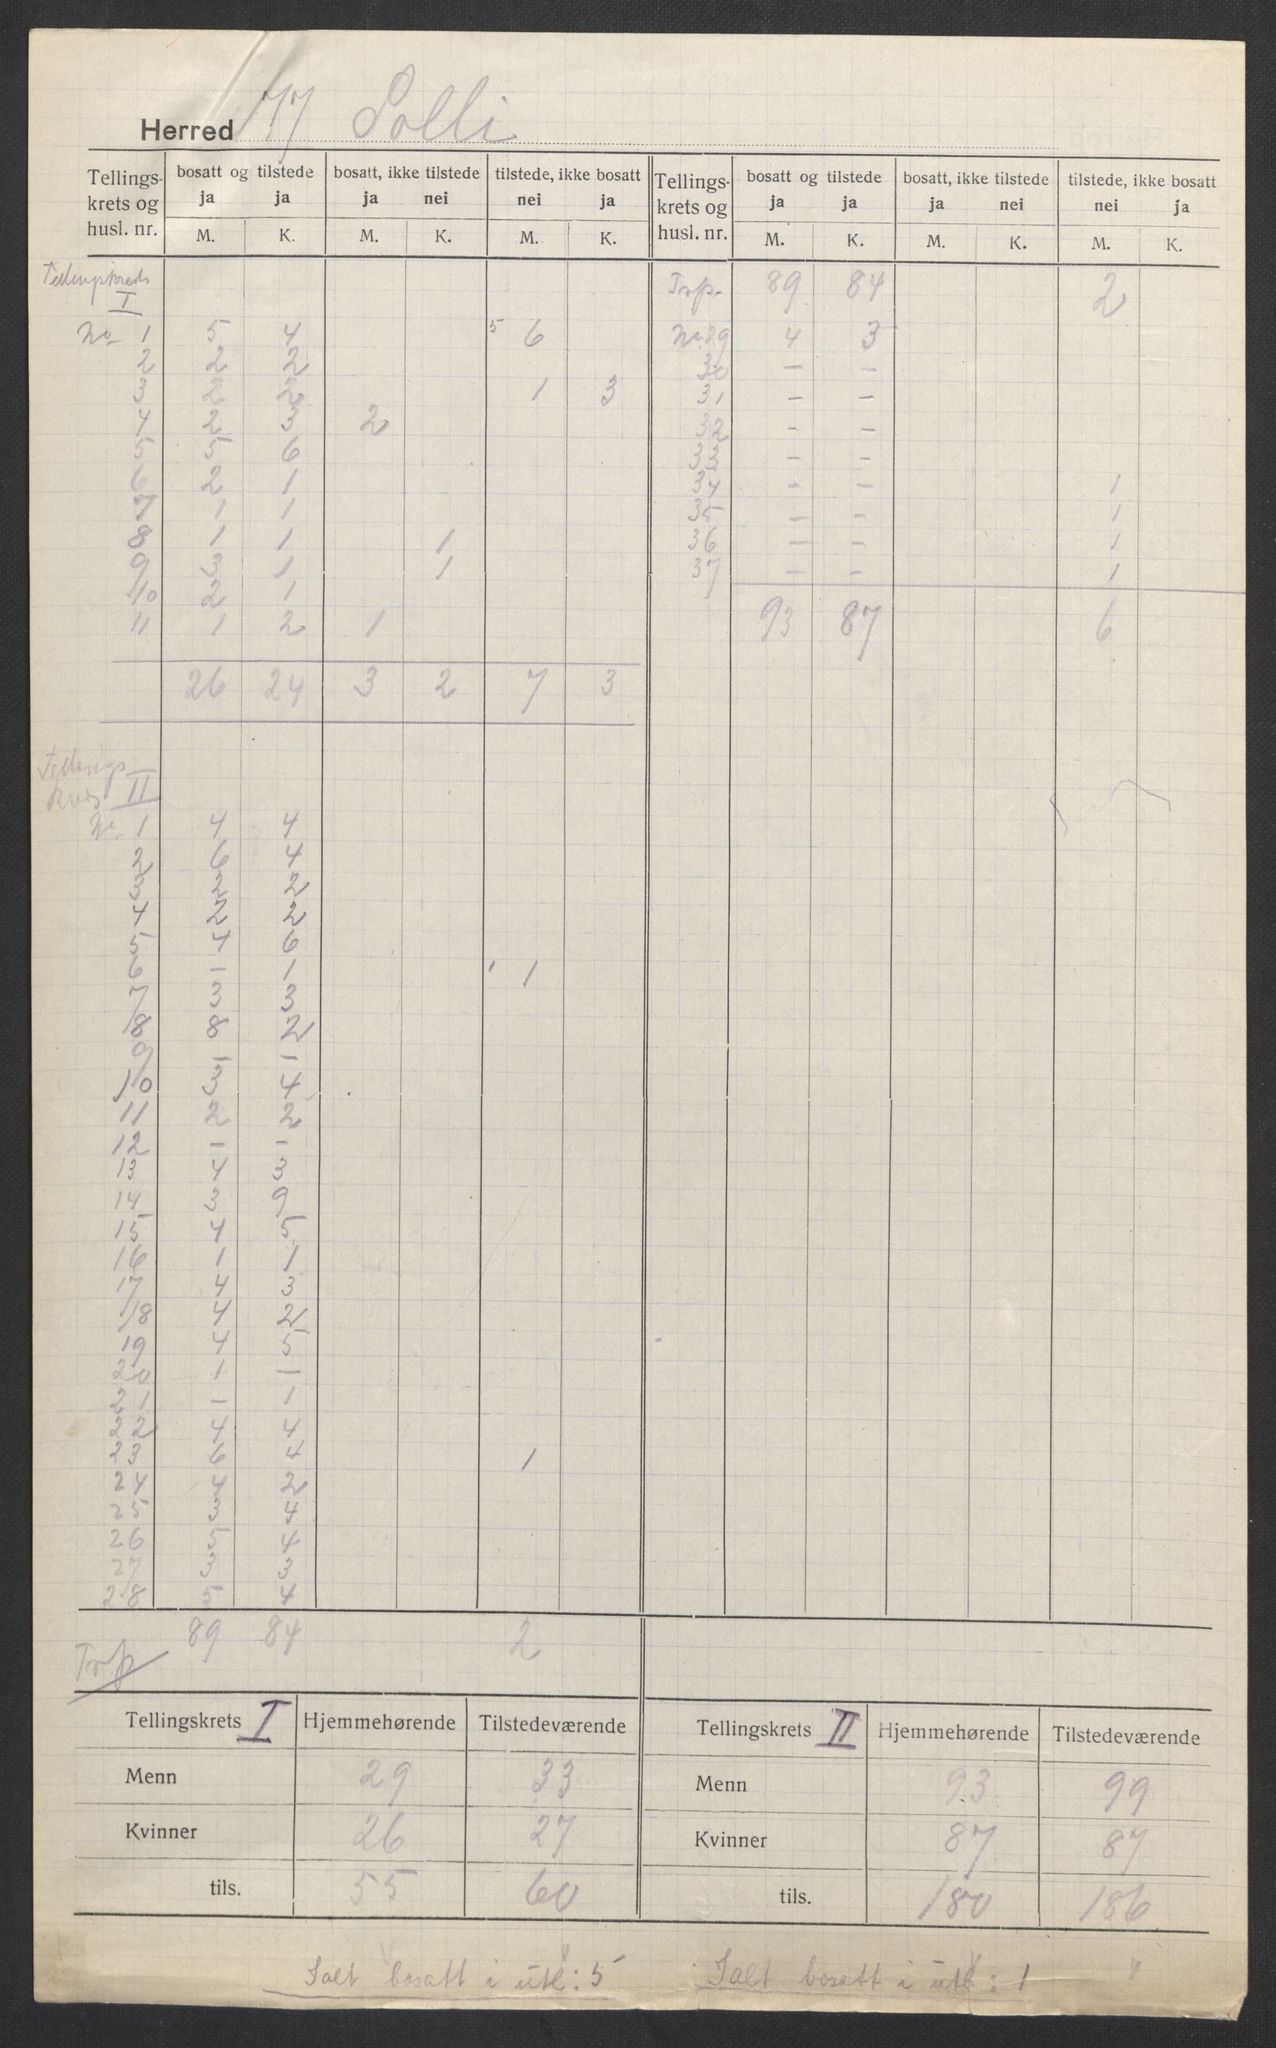 Herred 77 Solli
Tellings-krets og husl. nr. | bosatt og tilstede ja ja | bosatt, ikke tilstede ja nei | tilstede, ikke bosatt nei ja | Tellings-krets og husl. nr. | bosatt og tilstede ja ja | bosatt, ikke tilstede ja nei | tilstede, ikke bosatt nei ja
M. K. M. K. M. K. M. K. M. K. M. K.
Tellingskreds I
No 1 5 4 5 6
2 2 2
3 2 2 1 3
4 2 3 2
5 5 6
6 2 1
7 1 1
8 1 1 1
9 3 1 1
10 2 1
11 1 2 1
26 24 3 2 7 3
Tellings
kreds II
No 1 4 4
2 6 4
3 2 2
4 2 2
5 4 6
6 - 1 1 1
7 3 3
8 8 2
9 - -
10 3 4
11 2 2
12 - -
13 4 3
14 3 9
15 4 5
16 1 1
17 4 3
18 4 2
19 4 5
20 1 -
21 - 1
22 4 4
23 6 4 1
24 4 2
25 3 4
26 5 4
27 3 3
28 5 4
89 84 2
Trsp
Trsp. 89 84 2
No 29 4 3
30 - -
31 - -
32 - -
33 - -
34 - - 1
35 - - 1
36 - - 1
37 - - 1
93 87 6
Tellingskrets I Hjemmehørende Tilstedeværende
Menn 29 33
Kvinner 26 27
tils. 55 60
Tellingskrets II Hjemmehørende Tilstedeværende
Menn 93 99
Kvinner 87 87
tils. 180 186
Ialt bosatt i utl: 5
Ialt bosatt i utl: 1